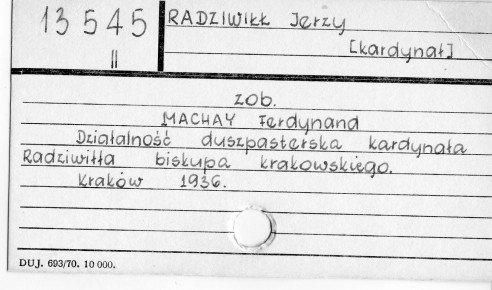 13545 RADZIWIŁŁ Jerzy
II [kardynał]
zob.
MACHAY Ferdynand
Działalność duszpasterska kardynała
Radziwiłła biskupa krakowskiego.
Kraków 1936.
DUJ. 693/70. 10 000.